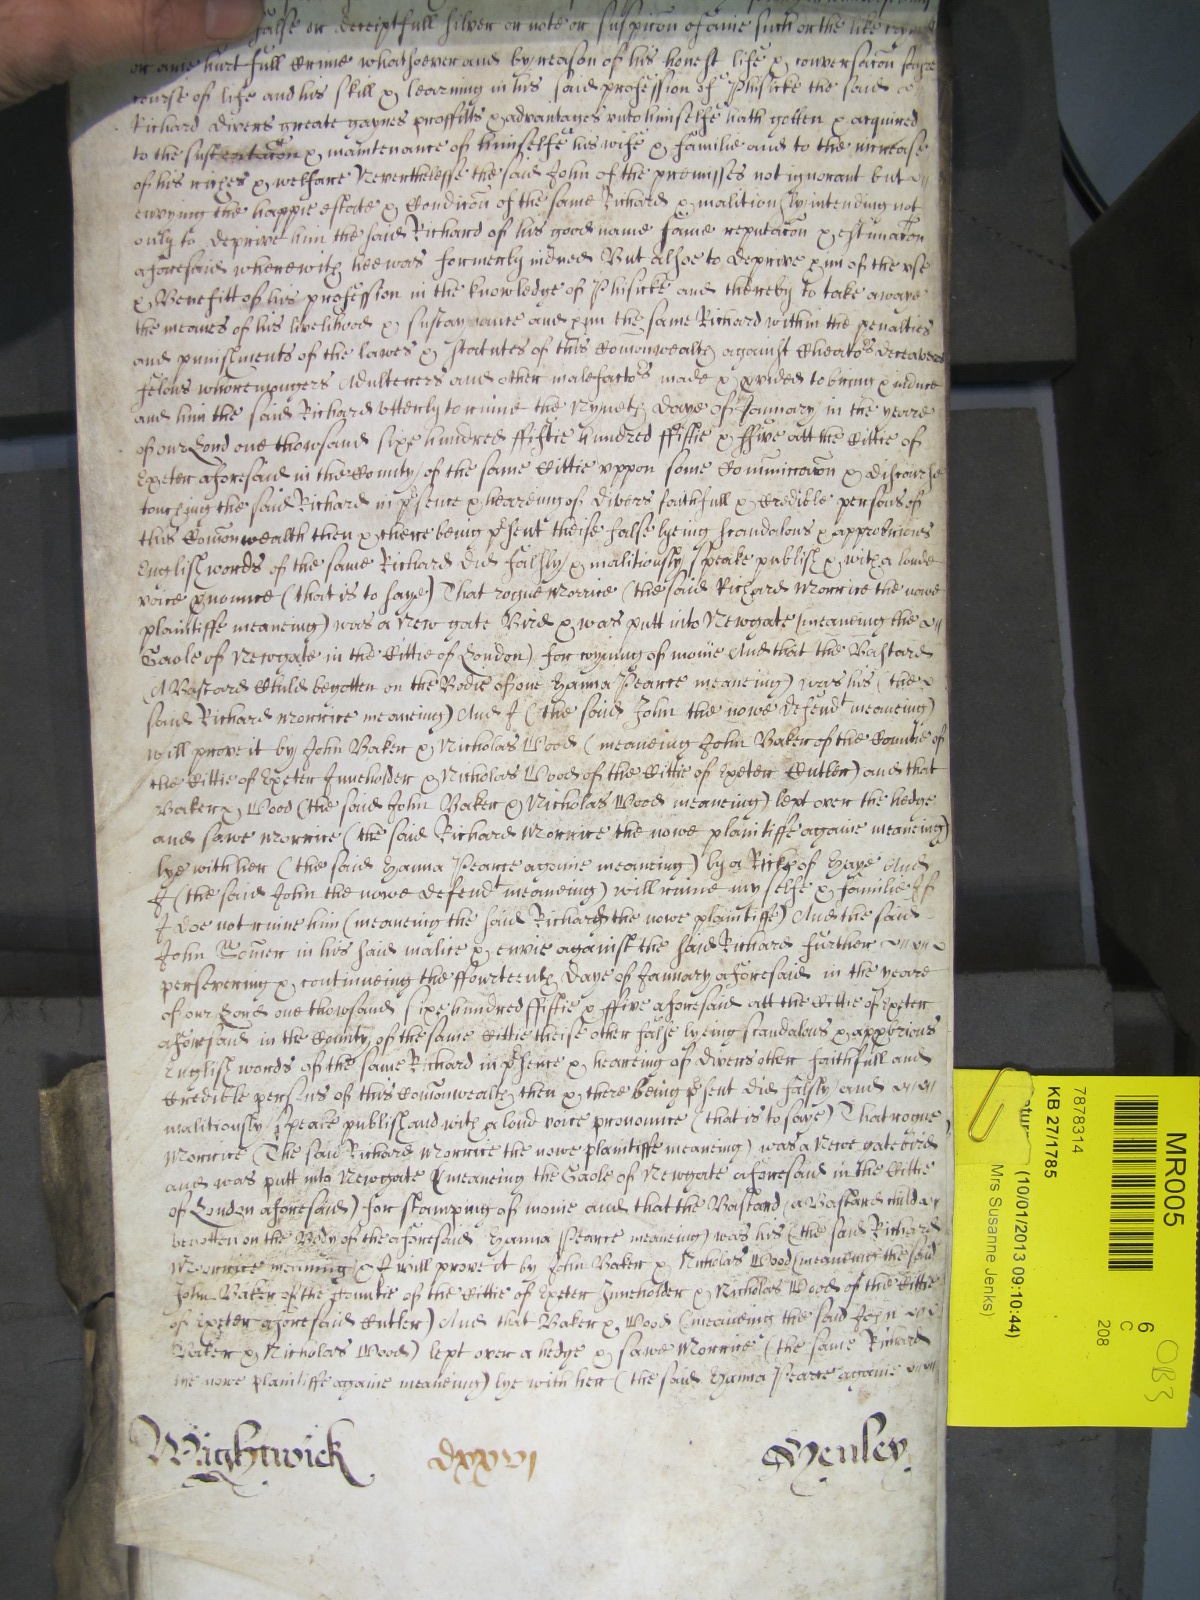 false or deceiptfull silver or note or suspicon of anie such or the like cryme
or anie hurtfull Crime whatsoever and by reason of his honest life & conversacon
course of life and his skill & learning in his said profession of Phisicke the said
Richard divers greate gaynes proffitts & advantages unto himselfe hath gotten & acquired
to the sustentacon & maintenance of himselfe his wife & familie and to the increase
of his riches & welfare Neverthelesse the said John of the premisses not ignorant but
envying the happie estate & Condicon of the same Richard & malitiously intending not
only to deprive him the said Richard of his good name fame reputacon & estimacon
aforesaid wherewith hee was formerly indued But alsoe to deprive him of the use
& Benefitt of his profession in the knowledge of Phisicke and thereby to take awaye
the meanes of his livelihood & sustaynance and him the same Richard within the penalties
and punishments of the lawes & Statutes of this Comonwealth against Cheators deceavers
felons whoremongers Adulterers and other malefactors made & provided to bring & induce
and him the said Richard utterly to ruine the Nyneth daye of January in the yeare
of our Lord one thowsand sixe hundred fiftie hundred ffiftie & ffive att the Cittie of
Exeter aforesaid in the County of the same Cittie uppon some Comunicacon & discourse
touching the said Richard in psence & heareing of divers faithfull & Credible persons of
this Comonwealth then & there being psent theise false lyeing scandalous & approbrious
English words of the same Richard did falsly & malitiously speake publish & with a loude
voice pnounce (that is to saye) That rogue Morrice (the said Richard Morrice the nowe
plaintiffe meaneing) was a New gate Bird & was putt into Newgate (meaneing the
Gaole of Newgate in the Cittie of London) for coyning of monie And that the Bastard
(A Bastard Child begotten on the Bodie of one Hanna Pearce meaneing) was his (the
said Richard Morrice meaneing) And I (the said John the nowe defendt meaneing)
will prove it by John Baker & Nicholas Wood (meaneing John Baker of the Countie of
the Cittie of Exeter Inneholder & Nicholas Wood of the Cittie of Exeter Cutler) and that
Baker & Wood (the said John Baker & Nicholas Wood meaneing) lept over the hedge
and sawe Morrice (the said Richard Morrice the nowe plaintiffe againe meaneing)
lye with her (the said Hanna Pearce againe meaneing) by a Ricke of Haye And
I (the said John the nowe defendt meaneing) will ruine my selfe & familie If
I doe not ruine him (meaneing the said Richard the nowe plaintiffe) And the said
John in his said malice & envie against the said Richard further
persevering & continueing the ffourteenth Daye of January aforesaid in the yeare
of our Lord one thowsand sixe hundred ffiftie & ffive aforesaid att the Cittie of Exeter
aforesaid in the County of the same Cittie theise other false lyeing scandalous & approbrious
English words of the same Richard in psence & heareing of divers other faithfull and
Credible persons of this Comonwealth then & there being psent did falsly and
malitiously speake publish and with a loud voice pronounce (that is to saye) That rogue
Morrice (The said Richard Morrice the nowe plaintiffe meaneing) was a Newe gate bird
and was putt into Newgate (meaneing the Gaole of Newgate aforesaid in the Cittie
of London aforesaid) for stamping of monie and that the Bastard (a Bastard child
begotten on the Body of the aforesaid Hanna Pearce meaneing) was his (the said Richard
Morrice meaning) & I will prove it by John Baker & Nicholas Wood (meaneing the said
John Baker of the Countie of the Cittie of Exeter Inneholder & Nicholas Wood of the Cittie
of Exeter aforesaid Cutler) And that Baker & Wood (meaneing the said John
Baker & Nicholas Wood) lept over a hedge & sawe Morrice (the same Richard
the nowe plaintiffe againe meaneing) lye with her (the said Hanna Pearce againe
Wightwick dxxvi Henley
MR005
6
C
208
OB3
7878314
KB 27/1785
(10/01/2013 09:10:44)
Mrs Susanne Jenks)